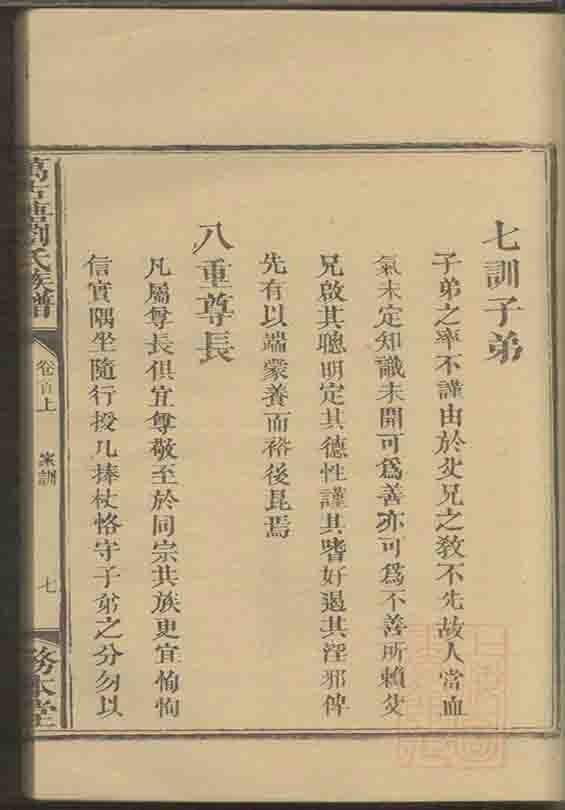 七訓子弟
子弟之率不謹由於父兄之教不先故人當血
氣未定知識未開可爲善亦可爲不善所賴父
兄啟其聰明定其德性謹其嗜好遏其淫邪俾
先有以端蒙養而裕後昆焉
八重尊長
凡屬尊長俱宜尊敬至於同宗共族更宜恂恂
信實隅坐隨行授几捧杖恪守子弟之分勿以
劉氏族譜
卷首上
家訓
七
務本堂